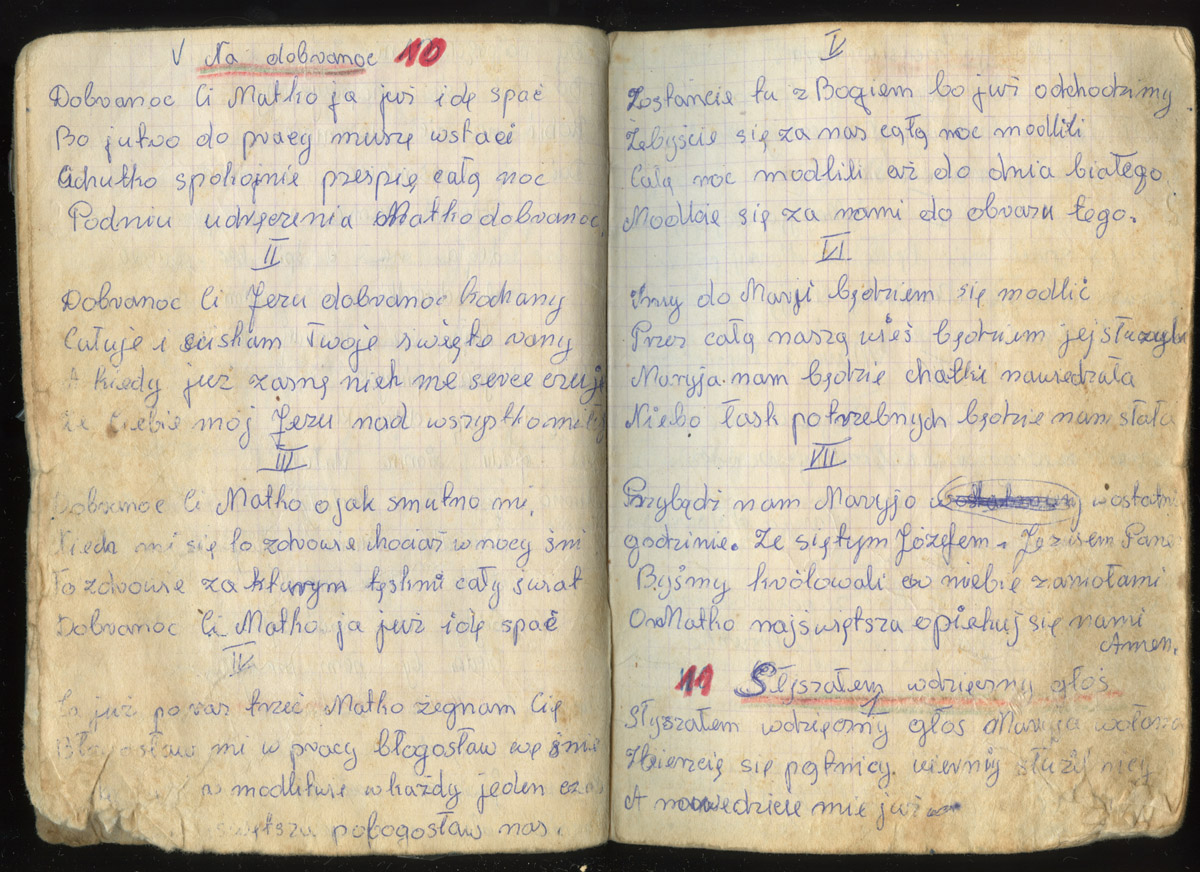 V Na dobranoc 10
Dobranoc Ci Matko ja już idę spać
Bo jutro do pracy muszę wstać
Cichutko spokojnie prespię całą noc
Podniu udręczenia Matko dobranoc.
II
Dobranoc Ci Jezu dobranoc kochany
Całuje i ściskam Twoje święte rany
A kiedy juz zasnę nieh me serce czuje
że Ciebie moj Jezu nad wszystko
III
Dobranoc Ci Matko o jak smutno mi,
Niech mi się to zdrowie chociaż w nocy śni
To zdrowie za kturym tęskni cały swiat
Dobranoc Ci Matko ja już idę spać
IV
Ja już po raz trzeć Matko żegnam Cię
Błogosław mi w pracy błogosław we śnie
w modlitwie w każdy jeden czas
świętsza pobogosław nas.
V
Zostańcie tu z Bogiem bo już odchodzimy
Żebyście się za nas cąłą noc modlili
Całą noc modlili aż do dnia białego
Modlcie się za nami do obrazu tego.
VI
my do Maryji będziem się modlić
Przez całą naszą wieś będziem jej służyli
Maryja nam będzie chatki nawiedzała
Niebo łask potrzebnych będzie nam słała
VII
Przybądź nam Maryjo w ostatni
godzinie. Ze siętym Józefem, Jezusem Pane
Byśmy królowali w niebie zaniołami
O Matko najswiętsza opiekuj się nami
Amen.
11 Słyszałem wdzięczny głos
1
Słyszałem wdzięczny głos Maryja wołała
Zbierzcię się pątnicy wierniy służ nicy
A nawiedzcie mie już